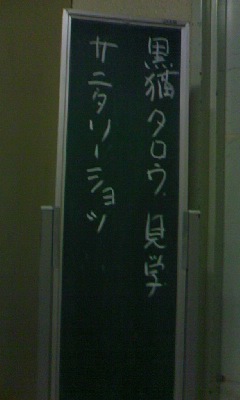 黒猫タロウ、見学
サニタリーショツ